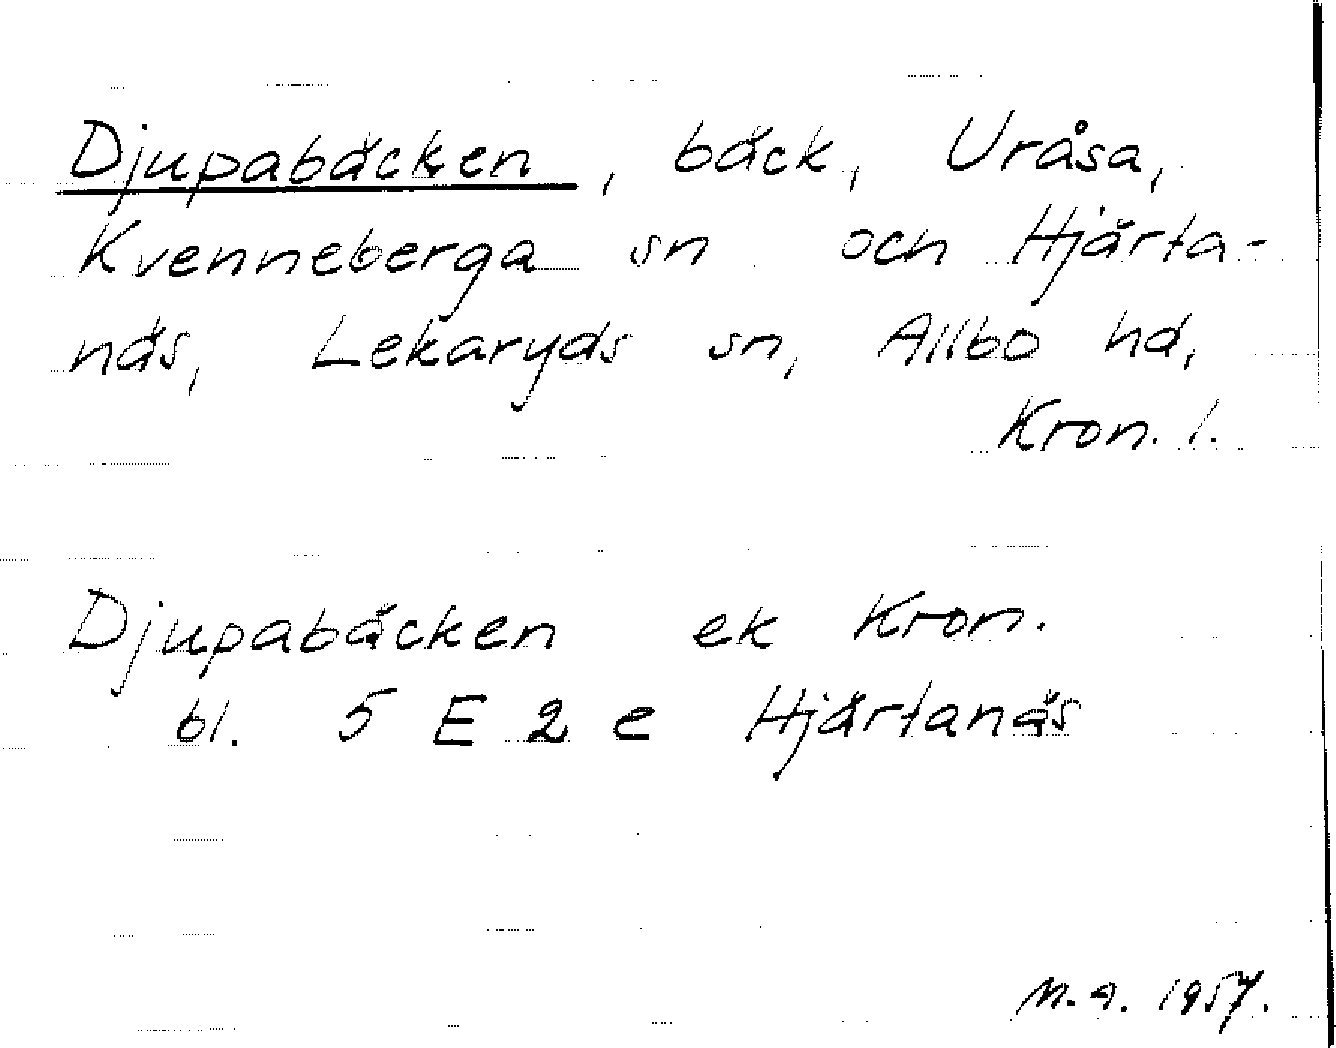 Djupabäcken, bäck, Uråsa,
Kvenneberga sn och Hjärta-
näs, Lekaryds sn, Allbo hd,
Kron. l.
Djupabäcken ek Kron.
bl. 5 E 2 e Hjärtanäs
M.A. 1957.